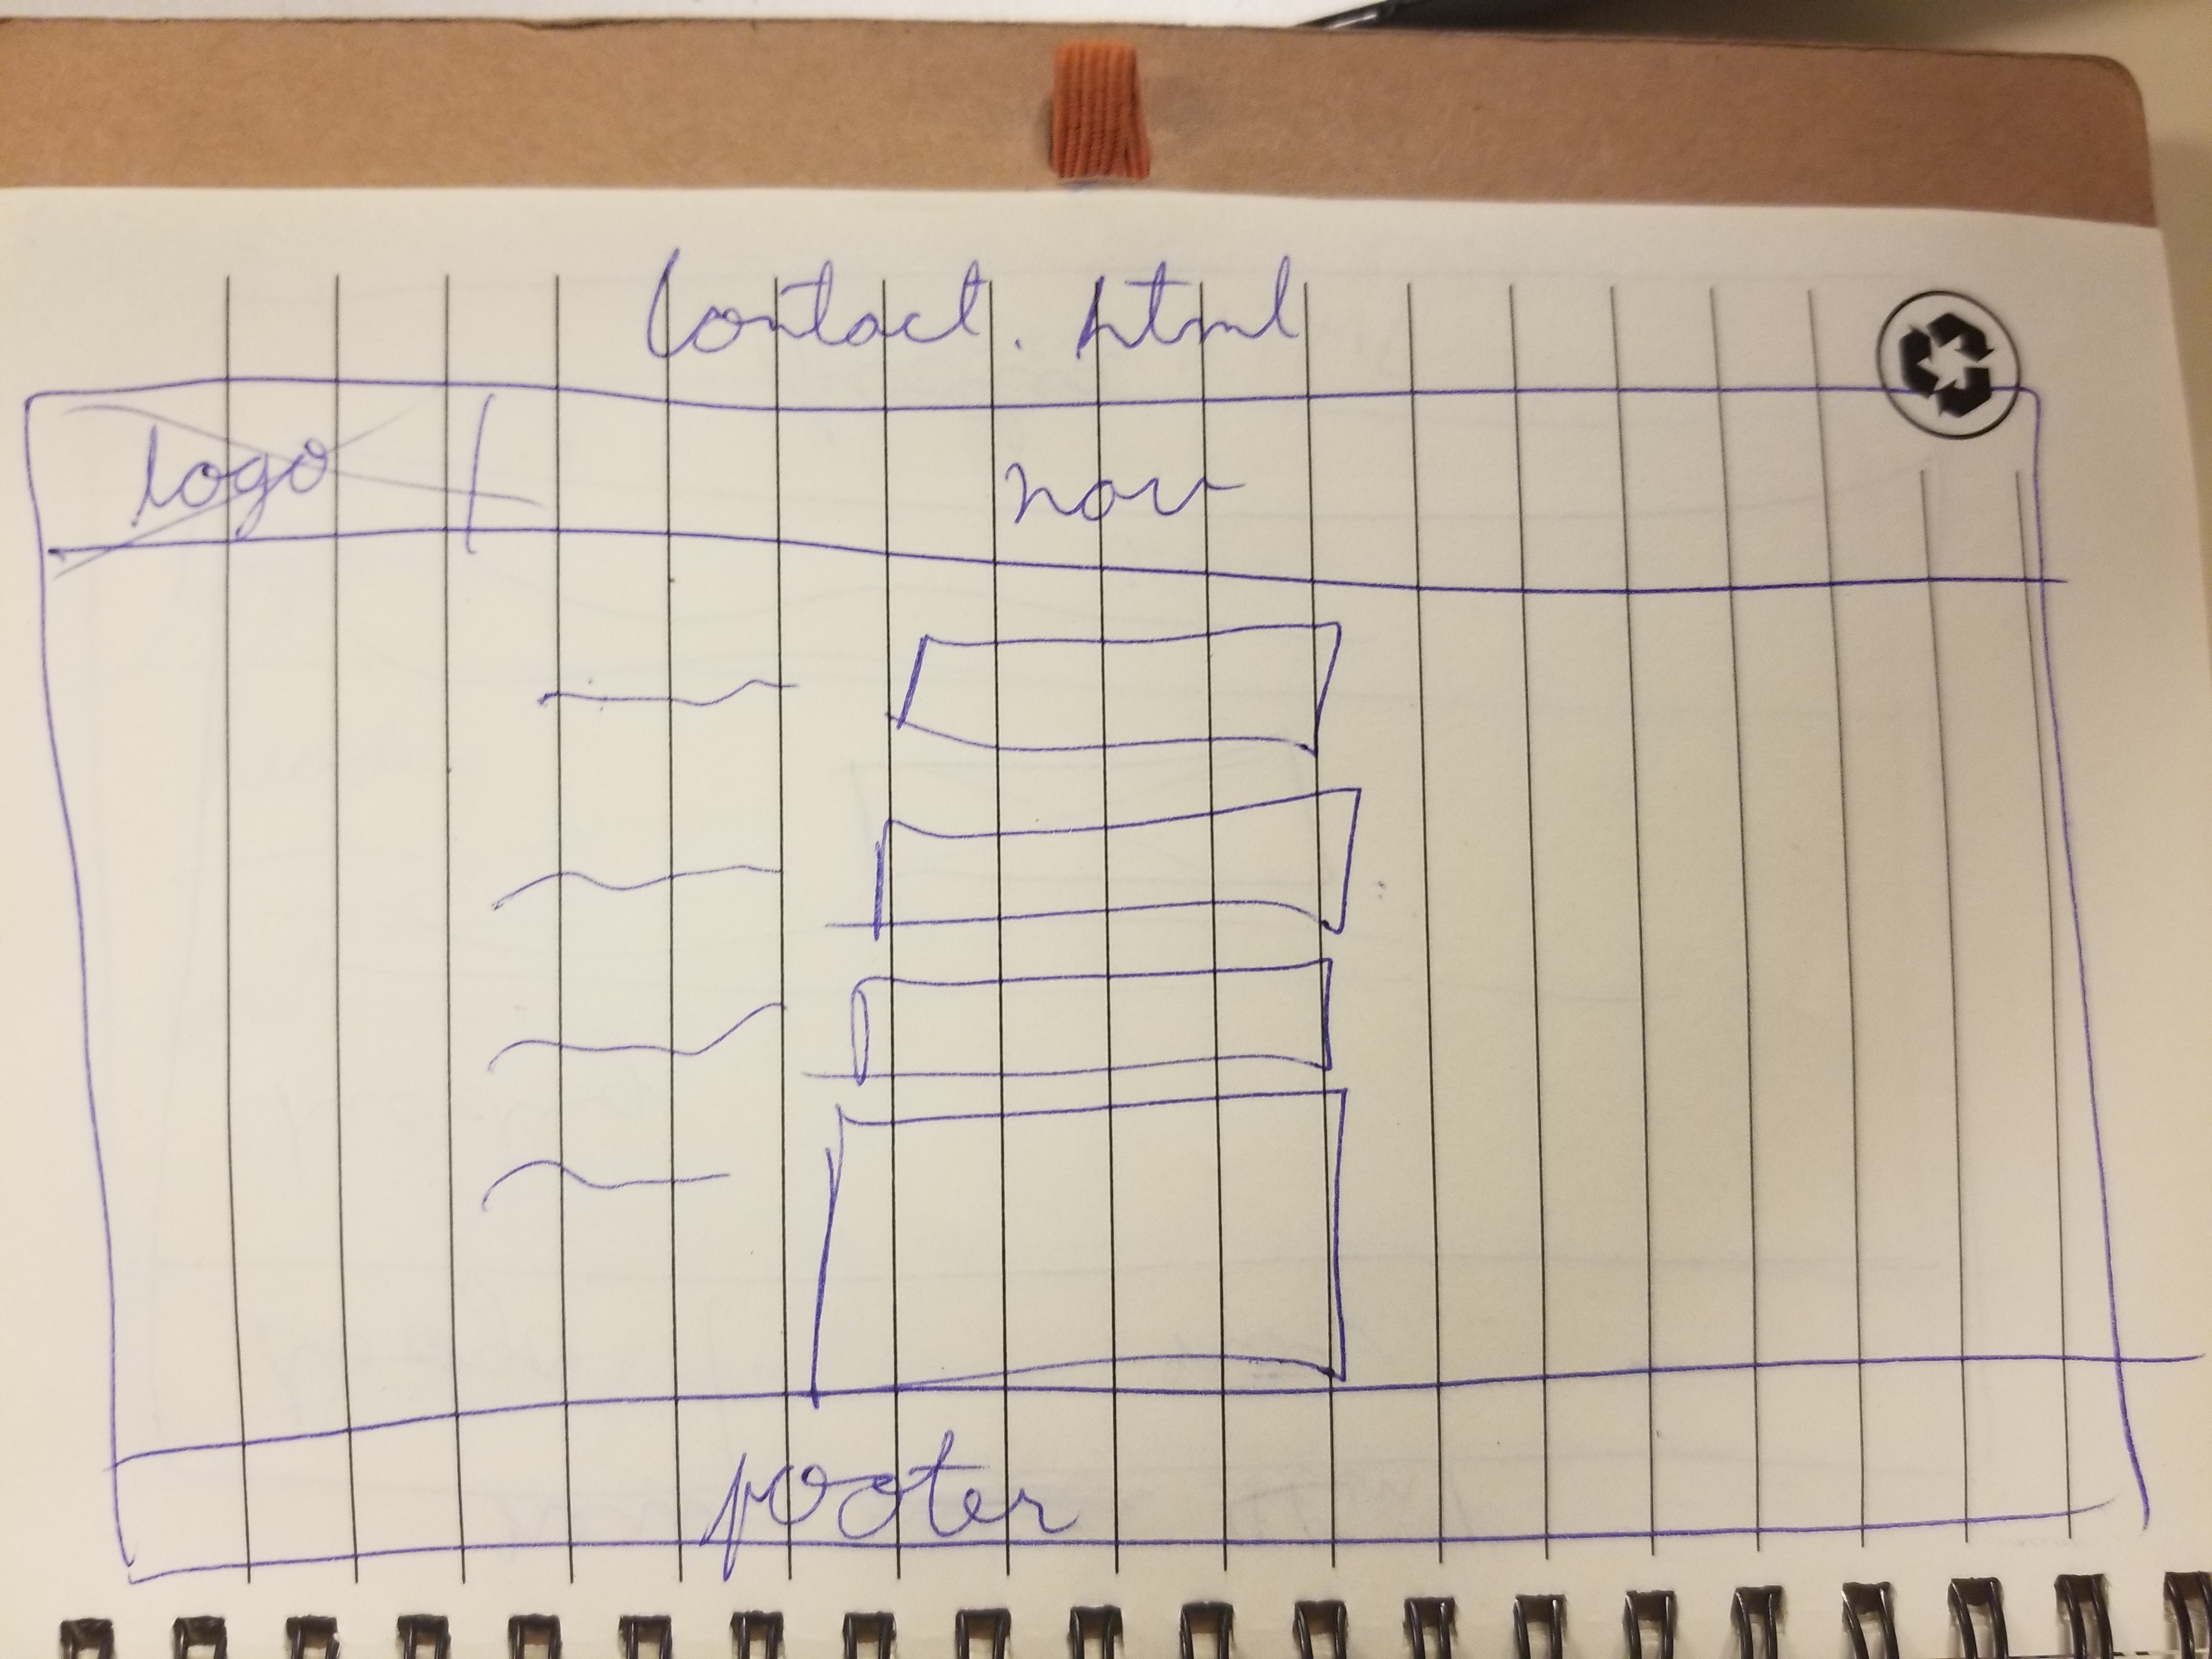 Contact.html
logo nav
footer